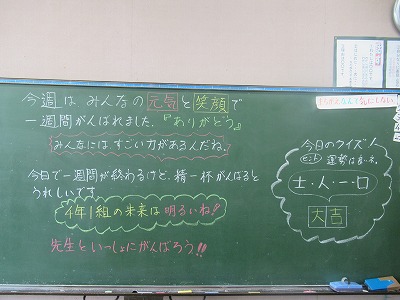 今週は みんなの 元気 と 笑顔 で
一週間がんばれました。『ありがとう』
みんなには、すごい力があるんだね。
今日で一週間が終わるけど、精一杯がんばると
うれしいです
4年1組の未来は明るいね!
先生といっしょにがんばろう!!
今日のクイズ
ヒント
士・人・一・口
大吉